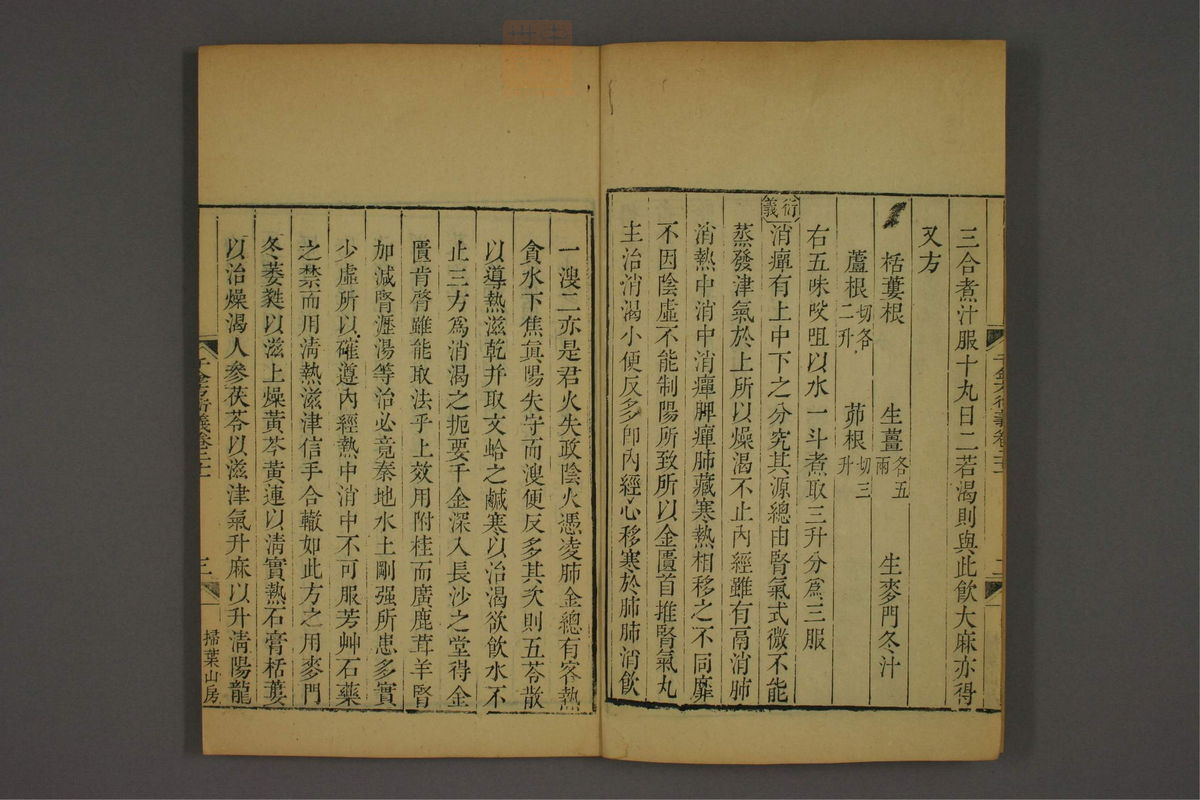 三合煮汁服十丸日二若渴則與此飲大麻亦得
又方
栝蔞根 生薑各五兩 生麥門冬汁
蘆根切各二升 茆根切三升
右五味㕮咀以水一斗煮取三升分爲三服
衍義 消癉有上中下之分究其源總由腎氣式微不能
蒸發津氣於上所以燥渴不止內經雖有鬲消肺
消熱中消中消癉脾癉肺藏寒熱相移之不同靡
不因陰虛不能制陽所致所以金匱首推腎氣丸
主治消渴小便反多卽內經心移寒於肺肺消飲
千金方衍義卷二十一
二
一溲二亦是君火失政陰火憑凌肺金總有客熱
貪水下焦眞陽失守而溲便反多其次則五苓散
以導熱滋乾幷取文蛤之鹹寒以治渴欲飲水不
止三方爲消渴之扼要千金深入長沙之堂得金
匱肯脊雖能取法乎上效用附桂而廣鹿茸羊腎
加減腎瀝湯等治必竟秦地水土剛强所患多實
少虛所以確遵內經熱中消中不可服芳艸石藥
之禁而用淸熱滋津信手合轍如此方之用麥門
冬萎蕤以滋上燥黃芩黃連以淸實熱石膏栝蔞
以治燥渴人參茯苓以滋津氣升麻以升淸陽龍
千金方衍義卷二十一
三
掃葉山房